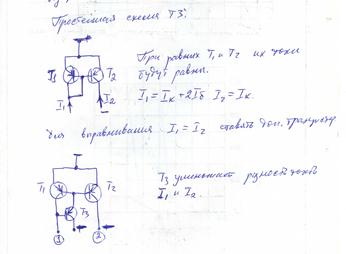 Простейшая схема ТЗ:
T1
T2
I1
I2
При равных T1 и T2 их токи
будут равны.
I1 = Iк + 2Iб I2 = Iк.
Для выравнивания I1 = I2 ставят доп. транзистор
T1
T2
T3
1
2
T3 уменьшает разность токов
I1 и I2.